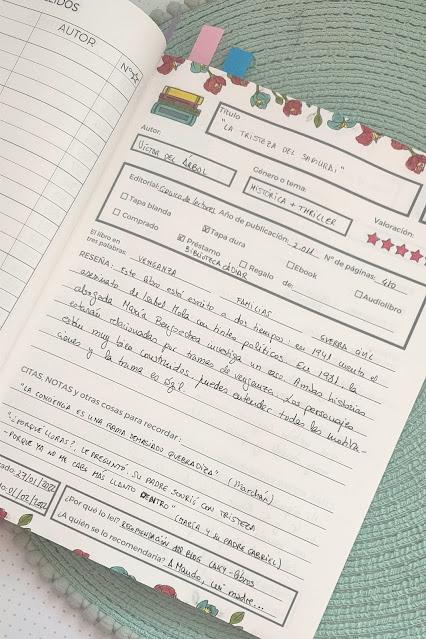 LEÍDOS
AUTOR
Nº
Título
"LA TRISTEZA DEL SAMURAI"
Autor:
VÍCTOR DEL ÁRBOL
Género o tema:
HISTÓRICA + THRILLER
Valoración:
Editorial: Círculo de lectores Año de publicación: 2.011 Nº de páginas: 410
Tapa blanda
Tapa dura
Ebook
Audiolibro
Comprado
Préstamo
BIBLIOTECA
Regalo de:
El libro en
tres palabras:
VENGANZA
FAMILIAS
GUERRA CIVIL
RESEÑA: Este libro está escrito a dos tiempos: en 1941 cuenta el
asesinato de Isabel Mola con tintes políticos. En 1981, la
abogada María Bengoechea investiga un caso. Ambas historias
estarán relacionadas por tramas de venganza. Los personajes
están muy bien construidos, puedes entender todas las motiva-
ciones y la trama es ágil.
CITAS, NOTAS y otras cosas para recordar:
"LA CONCIENCIA ES UNA RAMA DEMASIADO QUEBRADIZA" (Marchán)
"¿PORQUE LLORAS?, LE PREGUNTÓ. SU PADRE SONRIÓ CON TRISTEZA
-PORQUE YA NO ME CABE MÁS LLANTO DENTRO" (MARÍA Y SU PADRE GABRIEL)
27/01/2022
01/02/2022
¿Por qué lo leí? RECOMENDACIÓN DEL BLOG
¿A quién se lo recomendaría? A Mando, mi madre...